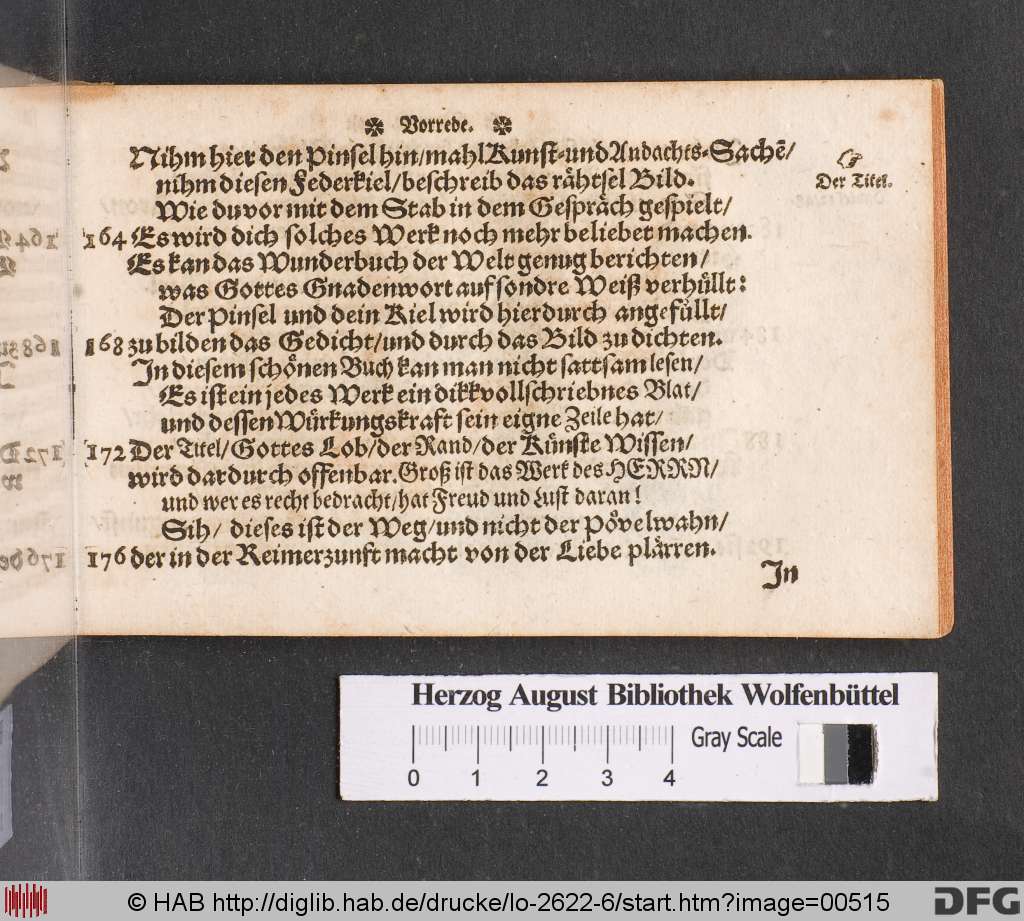 Vorrede.
Nihm hier den Pinsel hin/mahl Kunst-und Andachts-Sachē/
nihm diesen Federkiel/beschreib das rähtsel Bild.
Der Titel.
Wie du vor mit dem Stab in dem Gespräch gespielt/
164 Es wird dich solches Werk noch mehr beliebet machen.
Es kan das Wunderbuch der Welt genug berichten/
was Gottes Gnadenwort auf sondre Weiß verhüllt:
Der Pinsel und dein Kiel wird hierdurch angefüllt/
168 zu bilden das Gedicht/und durch das Bild zu dichten.
In diesem schönen Buch kan man nicht sattsam lesen/
Es ist ein jedes Werk ein dikk vollschriebnes Blat/
und dessen Würkungskraft sein eigne Zeile hat/
172 Der Titel/Gottes Lob/der Rand/der Künste Wissen/
wird dardurch offenbar. Groß ist das Werk des HERRN/
und wer es recht bedracht/hat Freud und Lust daran!
Sih/ dieses ist der Weg/und nicht der Pövelwahn/
176 der in der Reimerzunft macht von der Liebe plärren.
In
Herzog August Bibliothek Wolfenbüttel
0 1 2 3 4 Gray Scale
© HAB http://diglib.hab.de/drucke/lo-2622-6/start.htm?image=00515
DFG